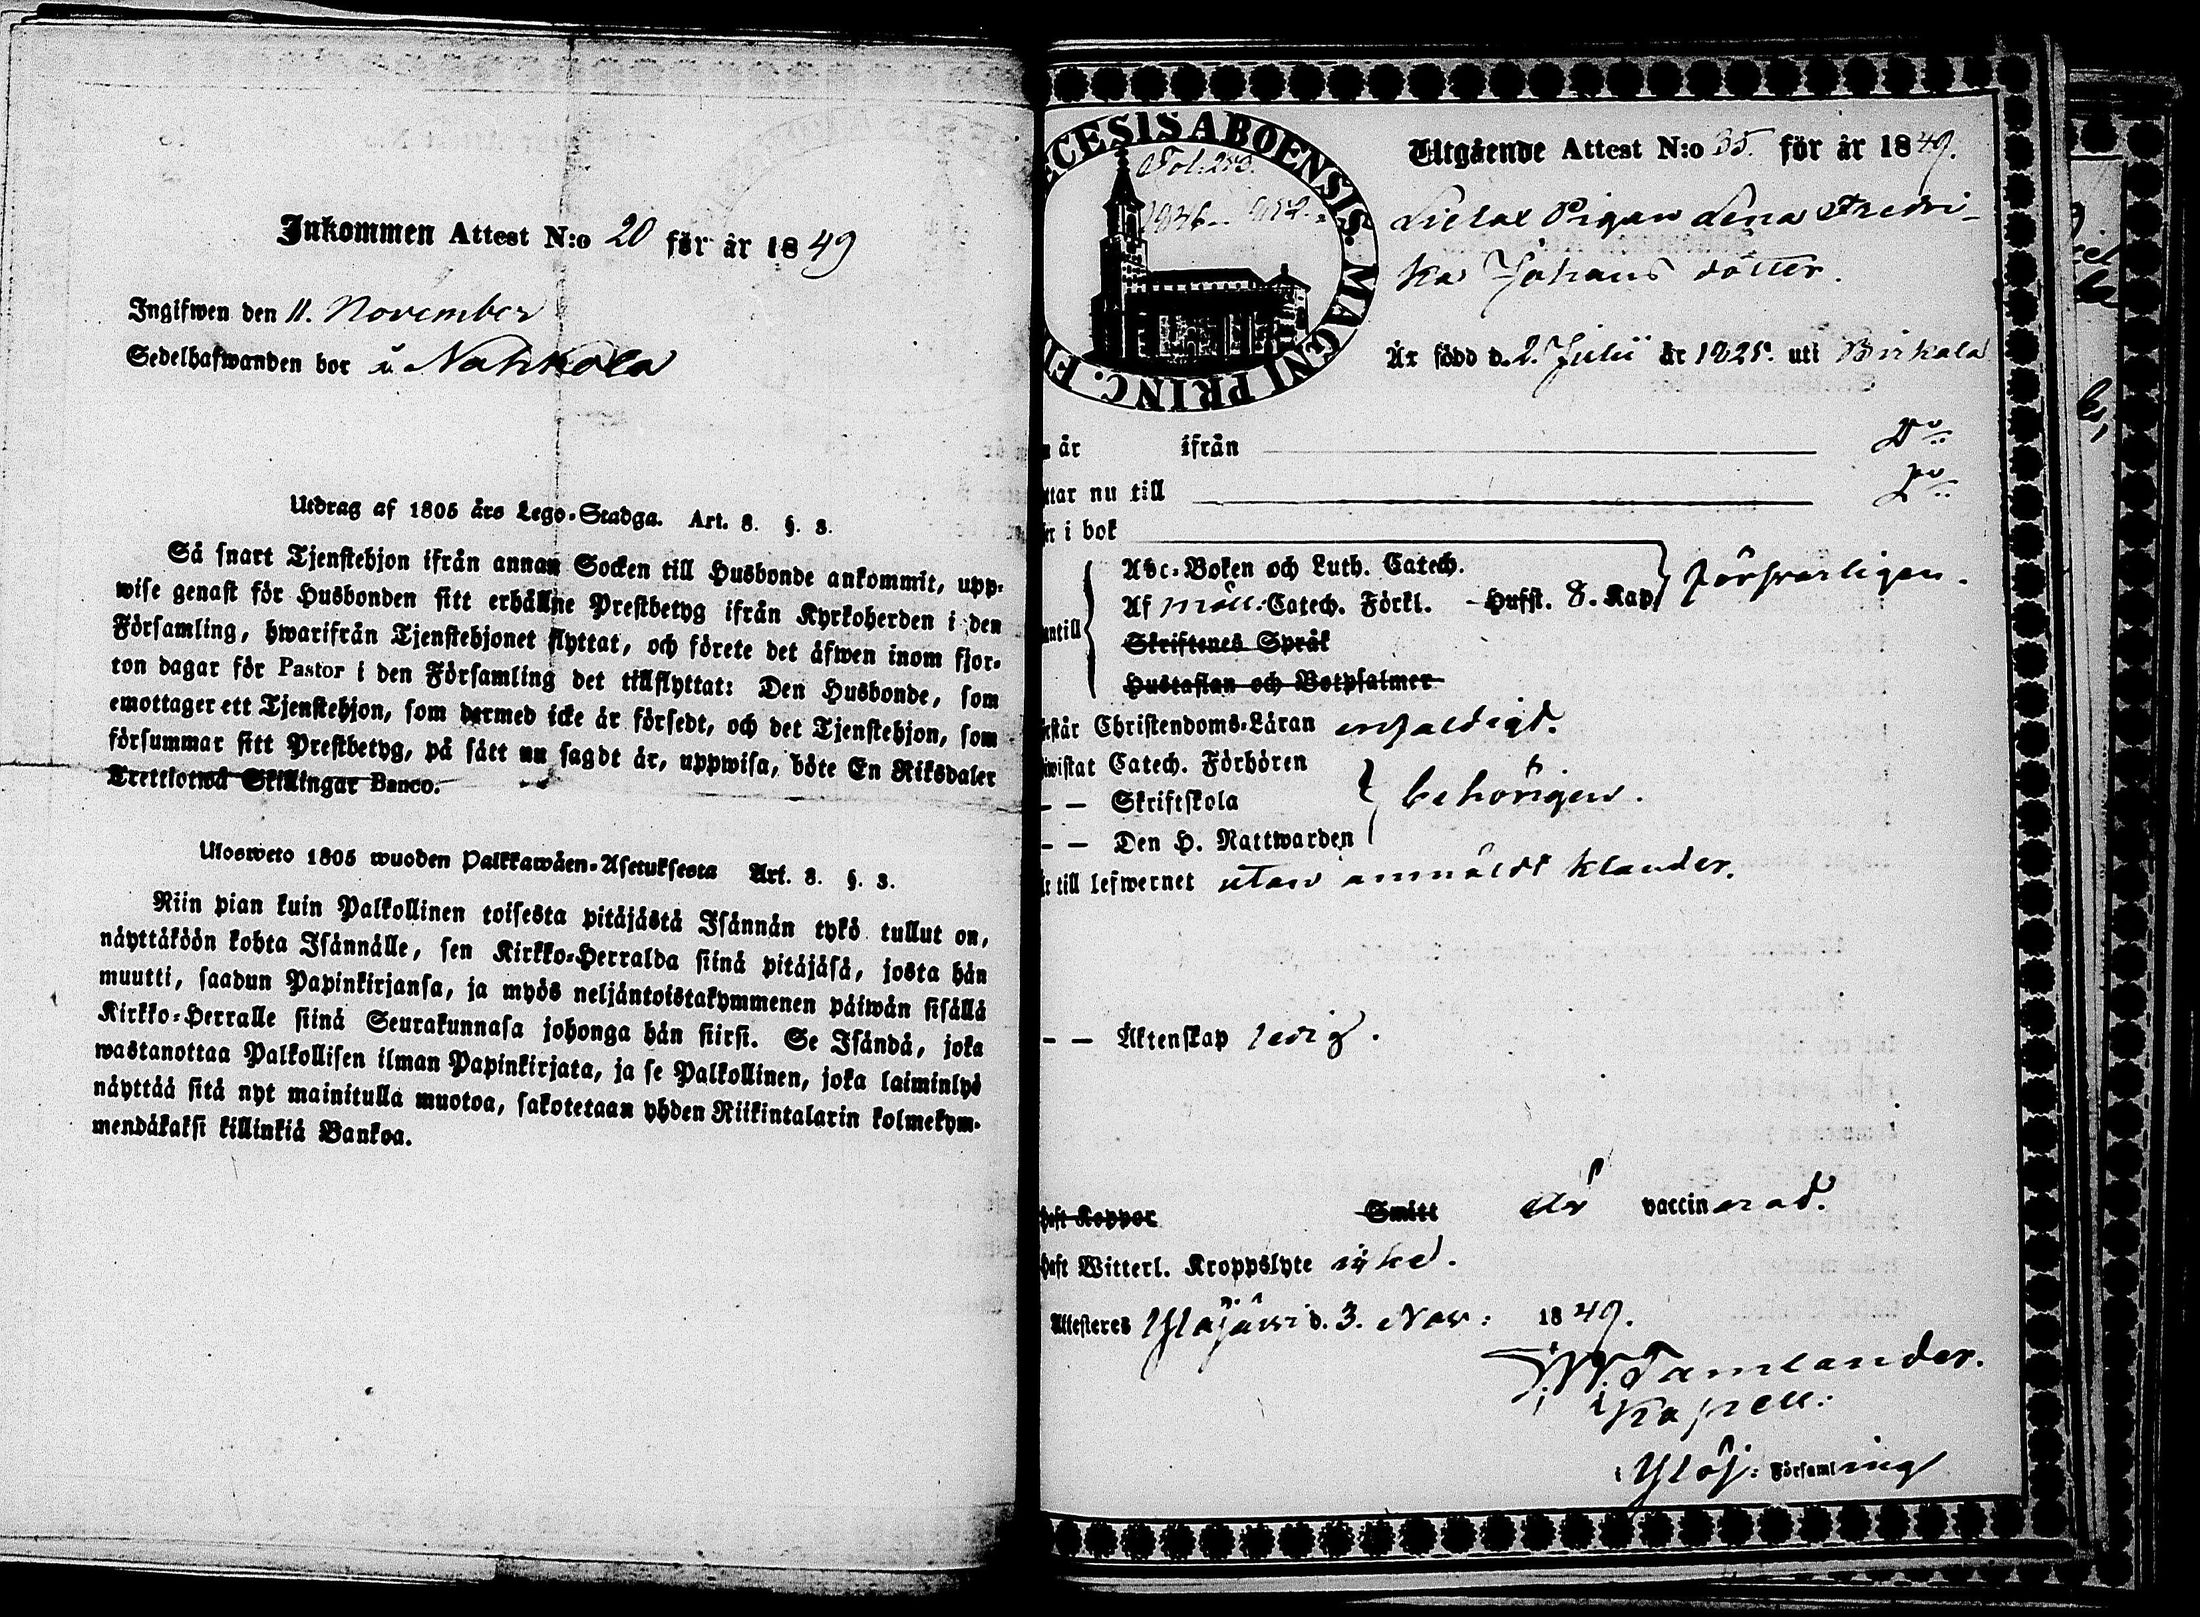 Inkommen Attest N:o 20 för år 1849
Ingifwen den 11. November
Sedelhafwanden bor i Nahkola
Utdrag af 1805 års Lego-Stadga. Art. 8. §. 3.
Så snart Tjenstehjon ifrån annan Socken till Husbonde ankommit, upp-
wise genast för Husbonden sitt erhållne Prestbetyg ifrån Kyrkoherden i den
Församling, hwarifrån Tjenstehjonet flyttat, och förete det äfwen inom fjor-
ton dagar för Pastor i den Församling det tillflyttat: Den Husbonde, som
emottager ett Tjenstehjon, som dermed icke är försedt, och det Tjenstehjon, som
försummar sitt Prestbetyg, på sätt nu sagdt är, uppwisa, böte En Riksdaler
Trettiotwå Skillingar Banco.
Ulosweto 1805 wuoden Palkkawäen-Asetuksesta Art. 8. §. 3.
Niin pian kuin Palkollinen toisesta pitäjästä Isännän tykö tullut on,
näyttäköön kohta Isännälle, sen Kirkko-Herralda siinä pitäjäsä, josta hän
muutti, saadun Papinkirjansa, ja myös neljäntoistakymmenen päiwän sisällä
Kirkko-Herralle siinä Seurakunnasa johonga hän siirsi. Se Isändä, joka
wastanottaa Palkollisen ilman Papinkirjata, ja se Palkollinen, joka laiminlyö
näyttää sitä nyt mainitulla muotoa, sakotetaan yhden Riikintalarin kolmekym-
mendäkaksi killinkiä Bankoa.
ECESIS ABOENSIS. MAGNI PRINC. F
Fol: 253.
Utgående Attest N:o 35. för år 1849.
Pigan Lena Fredri-
ka Johans dotter.
Är född d. 2. Julii år 1825. uti Birkala
år ifrån Do
ttar nu till Do
i bok
Abc-Boken och Luth. Catech.
Af Möll: Catech. Förkl. Hufst. 8. Kap. försvarligen.
antill
Skriftenes Språk
Hustaflan och Botpsalmer
står Christendoms-Läran enfaldigt.
wistat Catech. Förhören
— — Skriftskola behörigen.
— — Den H. Nattwarden
till lefwernet utan anmäldt klander.
— — Äktenskap ledig.
haft Koppor Smitt är vaccinerad.
haft Witterl. Kroppslyte icke.
Attesteres Ylöjärvi d. 3. Nov: 1849.
Tamlander.
Kapell:
i Ylöj: Församling